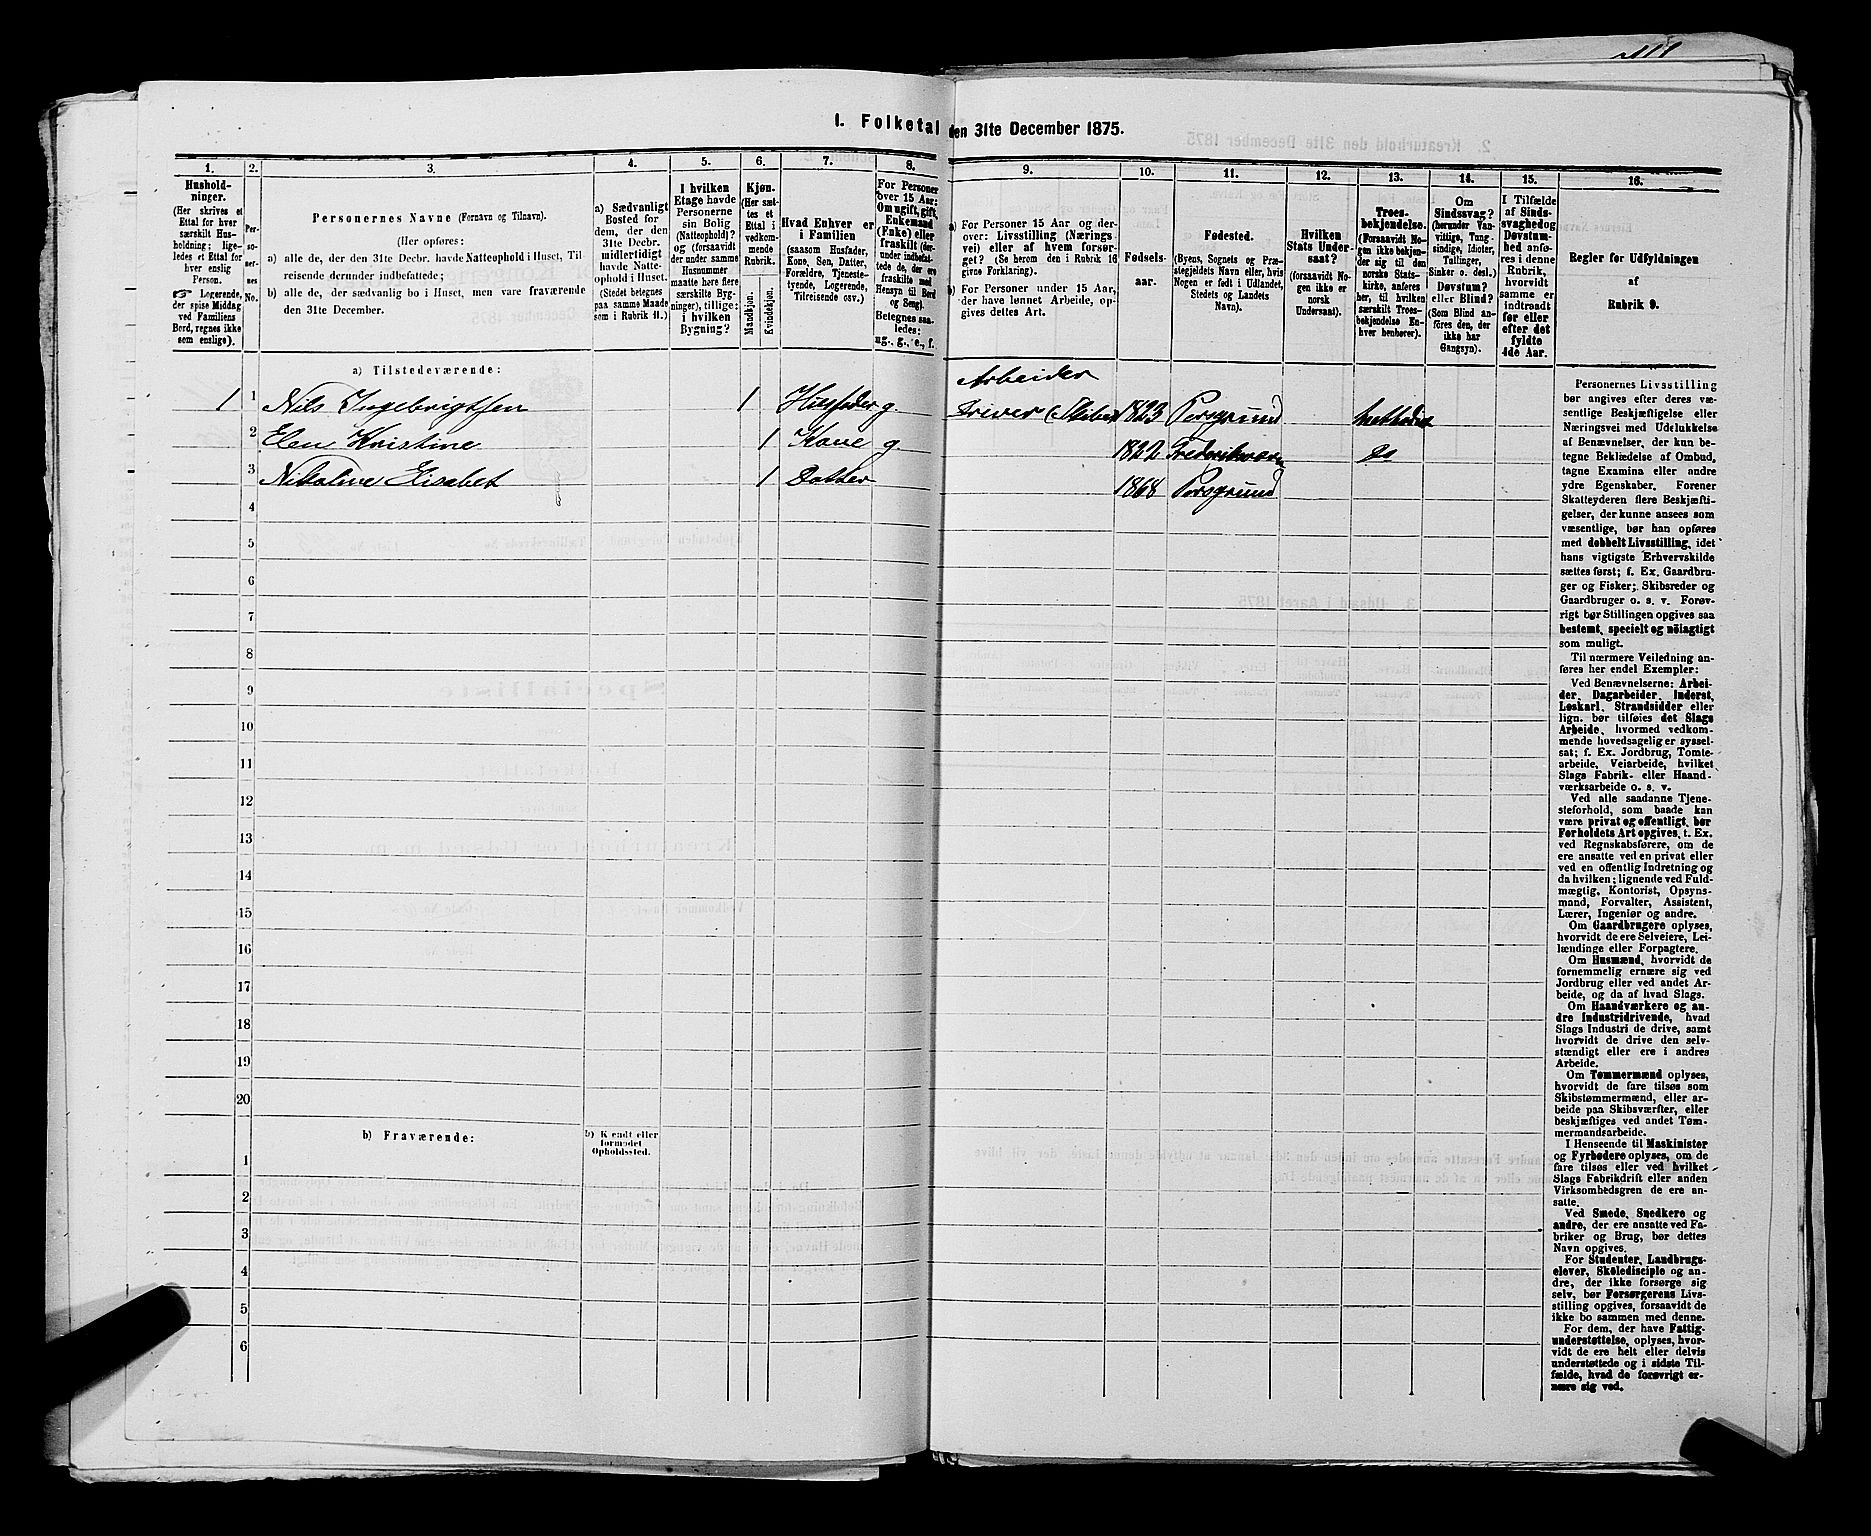 I. Folketal den 31te December 1875.
1.
2.
3.
4.
5.
6.
7.
8.
9.
10.
11.
12.
13.
14.
15.
16.
Hushold-
ninger.
(Her skrives et
Ettal for hver
særskilt Hus-
holdning; lige-
ledes et Ettal for
hver enslig
Person.
☞ Logerende,
der spise Middag
ved Familiens
Bord, regnes ikke
som enslige).
Per-
so-
ner-
nes.
No.
Personernes Navne (Fornavn og Tilnavn).
(Her opføres:
a) alle de, der den 31te Decbr. havde Natteophold i Huset, Til-
reisende derunder indbefattede;
b) alle de, der sædvanlig bo i Huset, men vare fraværende
den 31te December.
a) Sædvanligt
Bosted for
dem, der den
31te Decbr.
midlertidigt
havde Natte-
ophold i Huset.
(Stedet betegnes
paa samme Maade
som i Rubrik 11.)
I hvilken
Etage havde
Personerne
sin Bolig
(Natteophold)?
og (forsaavidt
der under samme
Husnummer
maatte høre flere
særskilte Byg-
ninger), tillige:
i hvilken
Bygning?
Kjøn.
(Her sæt-
tes et
Ettal i
vedkom-
mende
Rubrik.
Mandkjøn.
Kvindekjøn.
Hvad Enhver er
i Familien
(saasom Husfader,
Kone, Søn, Datter,
Forældre, Tjeneste-
tyende, Logerende,
Tilreisende osv.)
For Personer
over 15 Aar:
Om ugift, gift,
Enkemand
(Enke) eller
fraskilt (der-
under indbefat-
tede de, der ere
fraskilte med
Hensyn til Bord
og Seng).
Betegnes saa-
ledes:
ug., g., e., f.
a) For Personer 15 Aar og der-
over: Livsstilling (Nærings-
vei) eller af hvem forsør-
get? (Se herom den i Rubrik 16
givne Forklaring).
b) For Personer under 15 Aar,
der have lønnet Arbeide, op-
gives dettes Art.
Fødsels-
aar.
Fødested.
(Byens, Sognets og Præ-
stegjeldets Navn eller, hvis
Nogen er født i Udlandet,
Stedets og Landets
Navn).
Hvilken
Stats Under-
saat?
(forsaavidt No-
gen ikke er
norsk
Undersaat).
Troes-
bekjendelse.
(Forsaavidt No-
gen ikke bekjen-
der sig til den
norske Stats-
kirke, anføres
her, til hvilken
særskilt Troes-
bekjendelse En-
hver henhører).
Om
Sindssvag?
(herunder Van-
vittige, Tung-
sindige, Idioter,
Tullinger,
Sinker o. desl.)
Døvstum?
eller Blind?
(Som Blind an-
føres den, der
ikke har
Gangsyn).
I Tilfælde
af Sinds-
svaghed og
Døvstum-
hed anfø-
res i denne
Rubrik,
hvorvidt
samme er
indtraadt
før eller
efter det
fyldte
4de Aar.
Regler for Udfyldningen
af
Rubrik 9.
a) Tilstedeværende:
Arbeider
1 1 Nils Ingebrigtsen 1 Husfader g. 1823 Porsgrund
2 Elen Kristine 1 Kone g 1822 Frederiksværn Do
3 Nikoline Elisabet 1 Datter 1868 Porsgrund
4
5
6
7
8
9
10
11
12
13
14
15
16
17
18
19
20
b) Fraværende:
b) Kjendt eller
formodet
Opholdssted.
1
2
3
4
5
6
Personernes Livsstilling
bør angives efter deres væ-
sentlige Beskjæftigelse eller
Næringsvei med Udelukkelse
af Benævnelser, der kun be-
tegne Beklædelse af Ombud,
tagne Examina eller andre
ydre Egenskaber. Forener
Skatteyderen flere Beskjæfti-
gelser, der kunne ansees som
væsentlige, bør han opføres
med dobbelt Livsstilling, idet
hans vigtigste Erhvervskilde
sættes først; f. Ex. Gaardbru-
ger og Fisker; Skibsreder og
Gaardbruger o. s. v. Forøv-
rigt bør Stillingen opgives saa
bestemt, specielt og nöiagtigt
som muligt.
Til nærmere Veiledning an-
føres her endel Exempler:
Ved Benævnelserne: Arbei-
der, Dagarbeider, Inderst,
Løskarl, Strandsidder eller
lign. bør tilføies det Slags
Arbeide, hvormed vedkom-
mende hovedsagelig er syssel-
sat; f. Ex. Jordbrug, Tomte-
arbeide, Veiarbeide, hvilket
Slags Fabrik- eller Haand-
værksarbeide o. s. v.
Ved alle saadanne Tjene-
steforhold, som baade kan
være privat og offentligt, bør
Forholdets Art opgives, t. Ex.
ved Regnskabsførere, om de
ere ansatte ved en privat eller
ved en offentlig Indretning og
da hvilken; lignende ved Fuld-
mægtig, Kontorist, Opsyns-
mand, Forvalter, Assistent,
Lærer, Ingeniør og andre.
Om Gaardbrugere oplyses,
hvorvidt de ere Selveiere, Lei-
lændinge eller Forpagtere.
Om Husmænd, hvorvidt de
fornemmelig ernære sig ved
Jordbrug eller ved andet Ar-
beide, og da af hvad Slags.
Om Haandværkere og an-
dre Industridrivende, hvad
Slags Industri de drive, samt
hvorvidt de drive den selv-
stændigt eller ere i andres
Arbeide.
Om Tømmermænd oplyses,
hvorvidt de fare tilsøs som
Skibstømmermænd, eller ar-
beide paa Skibsværfter, eller
beskjæftiges ved andet Tøm-
mermandsarbeide.
I Henseende til Maskinister
og Fyrbødere oplyses, om de
fare tilsøs eller ved hvilket
Slags Fabrikdrift eller anden
Virksombedsgren de ere an-
satte.
Ved Smede, Snedkere og
andre, der ere ansatte ved Fa-
briker og Brug, bør dettes
Navn opgives.
For Studenter, Landbrugs-
elever, Skoledisciple og an-
dre, der ikke forsørge sig
selv, bør Forsørgerens Livs-
stilling opgives, forsaavidt de
ikke bo sammen med denne.
For dem, der have Fattig-
understøttelse, oplyses, hvor-
vidt de ere helt eller delvis
understøttede og i sidste Til-
fælde, hvad de forøvrigt er-
nære sig ved.